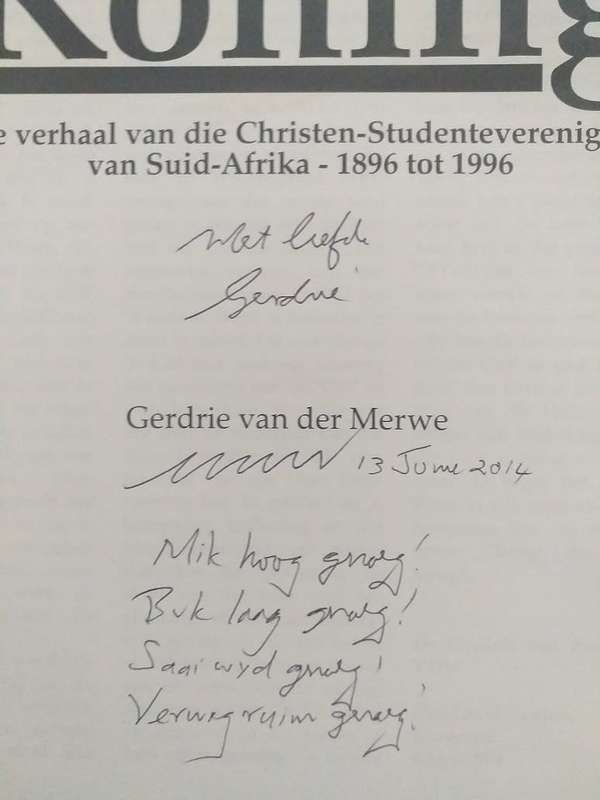 Koning
e verhaal van die Christen-Studenteverenig
van Suid-Afrika - 1896 tot 1996
Met liefde
Gerdrie
Gerdrie van der Merwe
13 June 2014
Mik hoog genoeg!
Buk laag genoeg!
Saai wyd genoeg!
Verwag ruim genoeg!